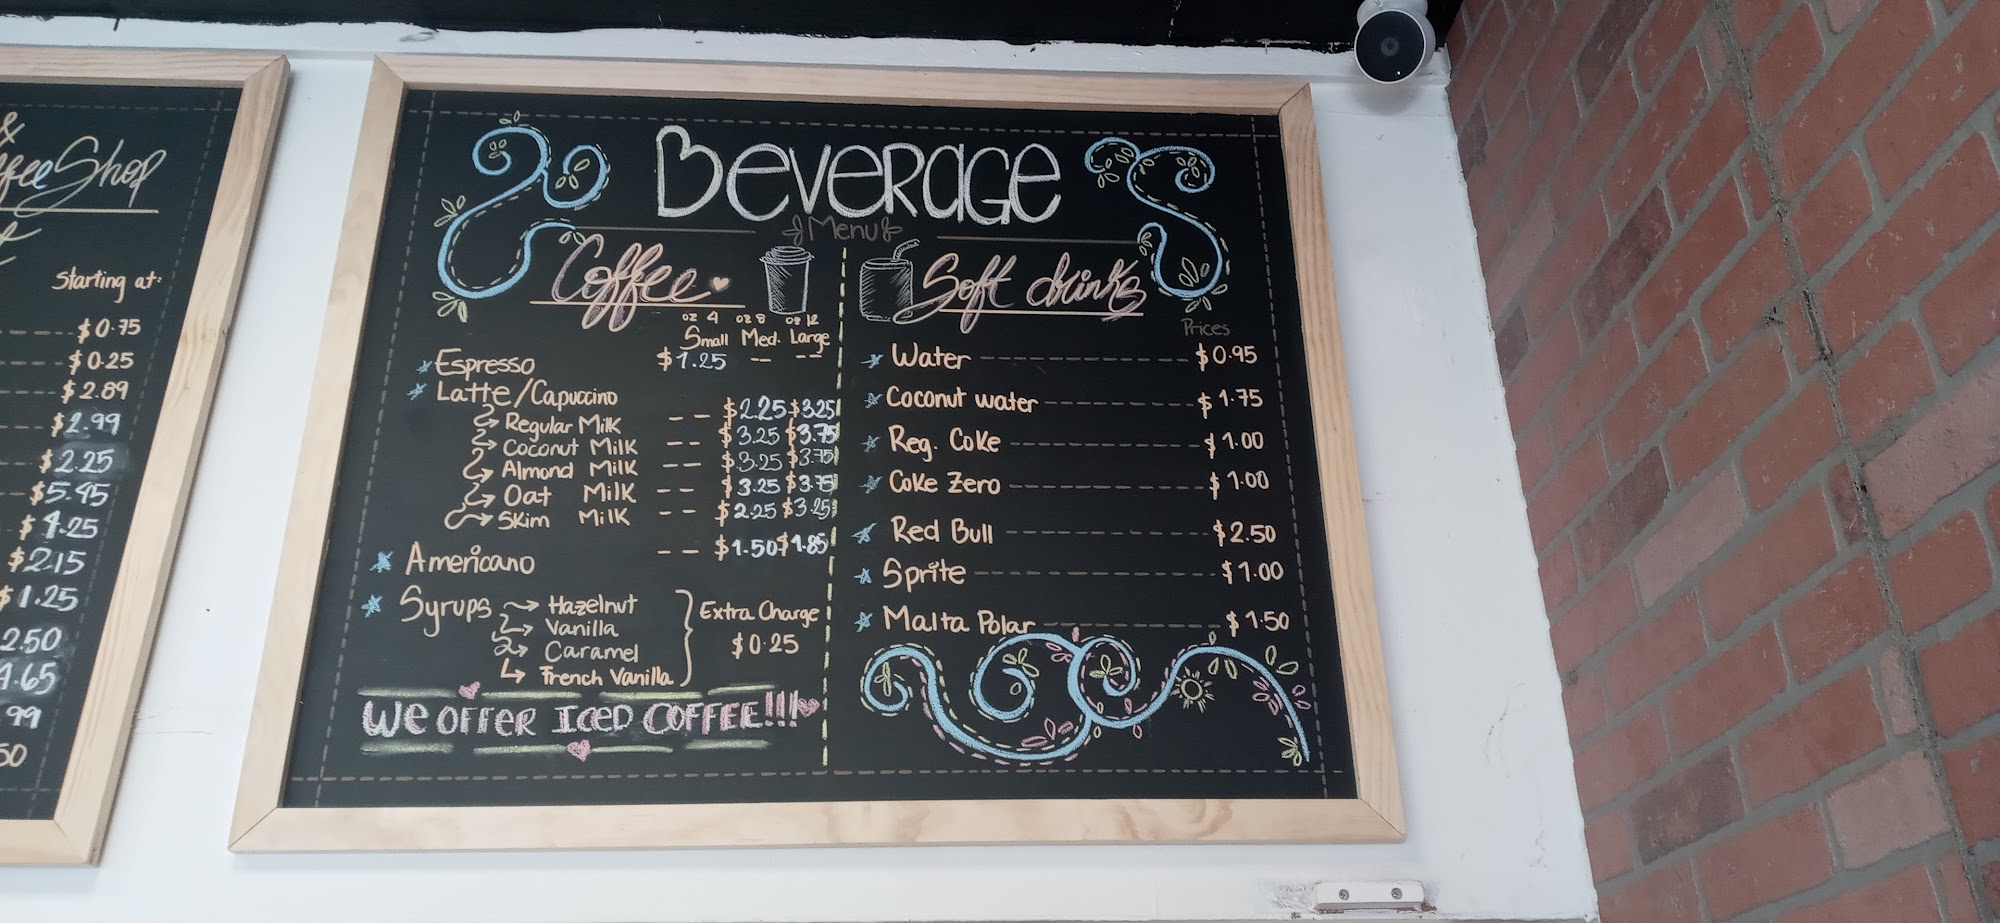 &
ffee Shop
t
Starting at:
$0.75
$0.25
$2.89
$2.99
$2.25
$5.95
$4.25
$2.15
$1.25
2.50
4.65
99
50
Beverage
Menu
Coffee
oz 4 oz 8 oz 12
Small Med. Large
Espresso $1.25 -- --
Latte/Capuccino
Regular Milk -- $2.25 $3.25
Coconut Milk -- $3.25 $3.75
Almond Milk -- $3.25 $3.75
Oat Milk -- $3.25 $3.75
Skim Milk -- $2.25 $3.25
Americano -- $1.50 $1.85
Syrups Hazelnut
Vanilla
Caramel
French Vanilla
Extra Charge
$0.25
WE OFFER ICED COFFEE!!!
Soft drinks
Prices
Water $0.95
Coconut water $1.75
Reg. Coke $1.00
Coke Zero $1.00
Red Bull $2.50
Sprite $1.00
Malta Polar $1.50